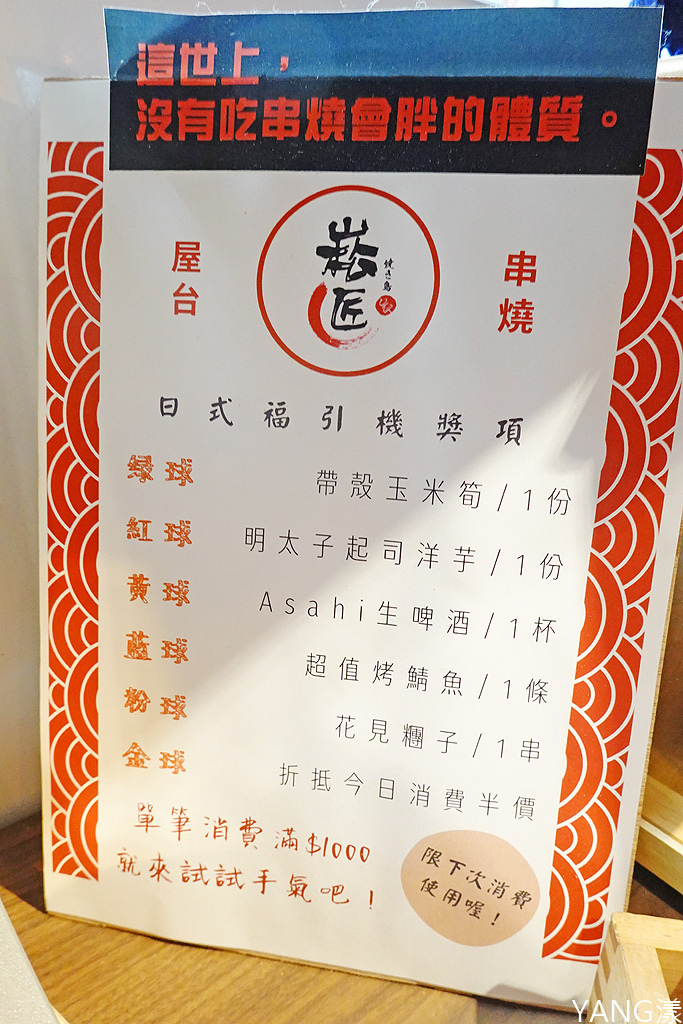 這世上，
沒有吃串燒會胖的體質。
屋台
崧匠
焼き鳥
串燒
日式福引機獎項
綠球 帶殼玉米筍/1份
紅球 明太子起司洋芋/1份
黃球 Asahi生啤酒/1杯
藍球 超值烤鯖魚/1條
粉球 花見糰子/1串
金球 折抵今日消費半價
單筆消費滿$1000
就來試試手氣吧！
限下次消費
使用喔！
YANG漾